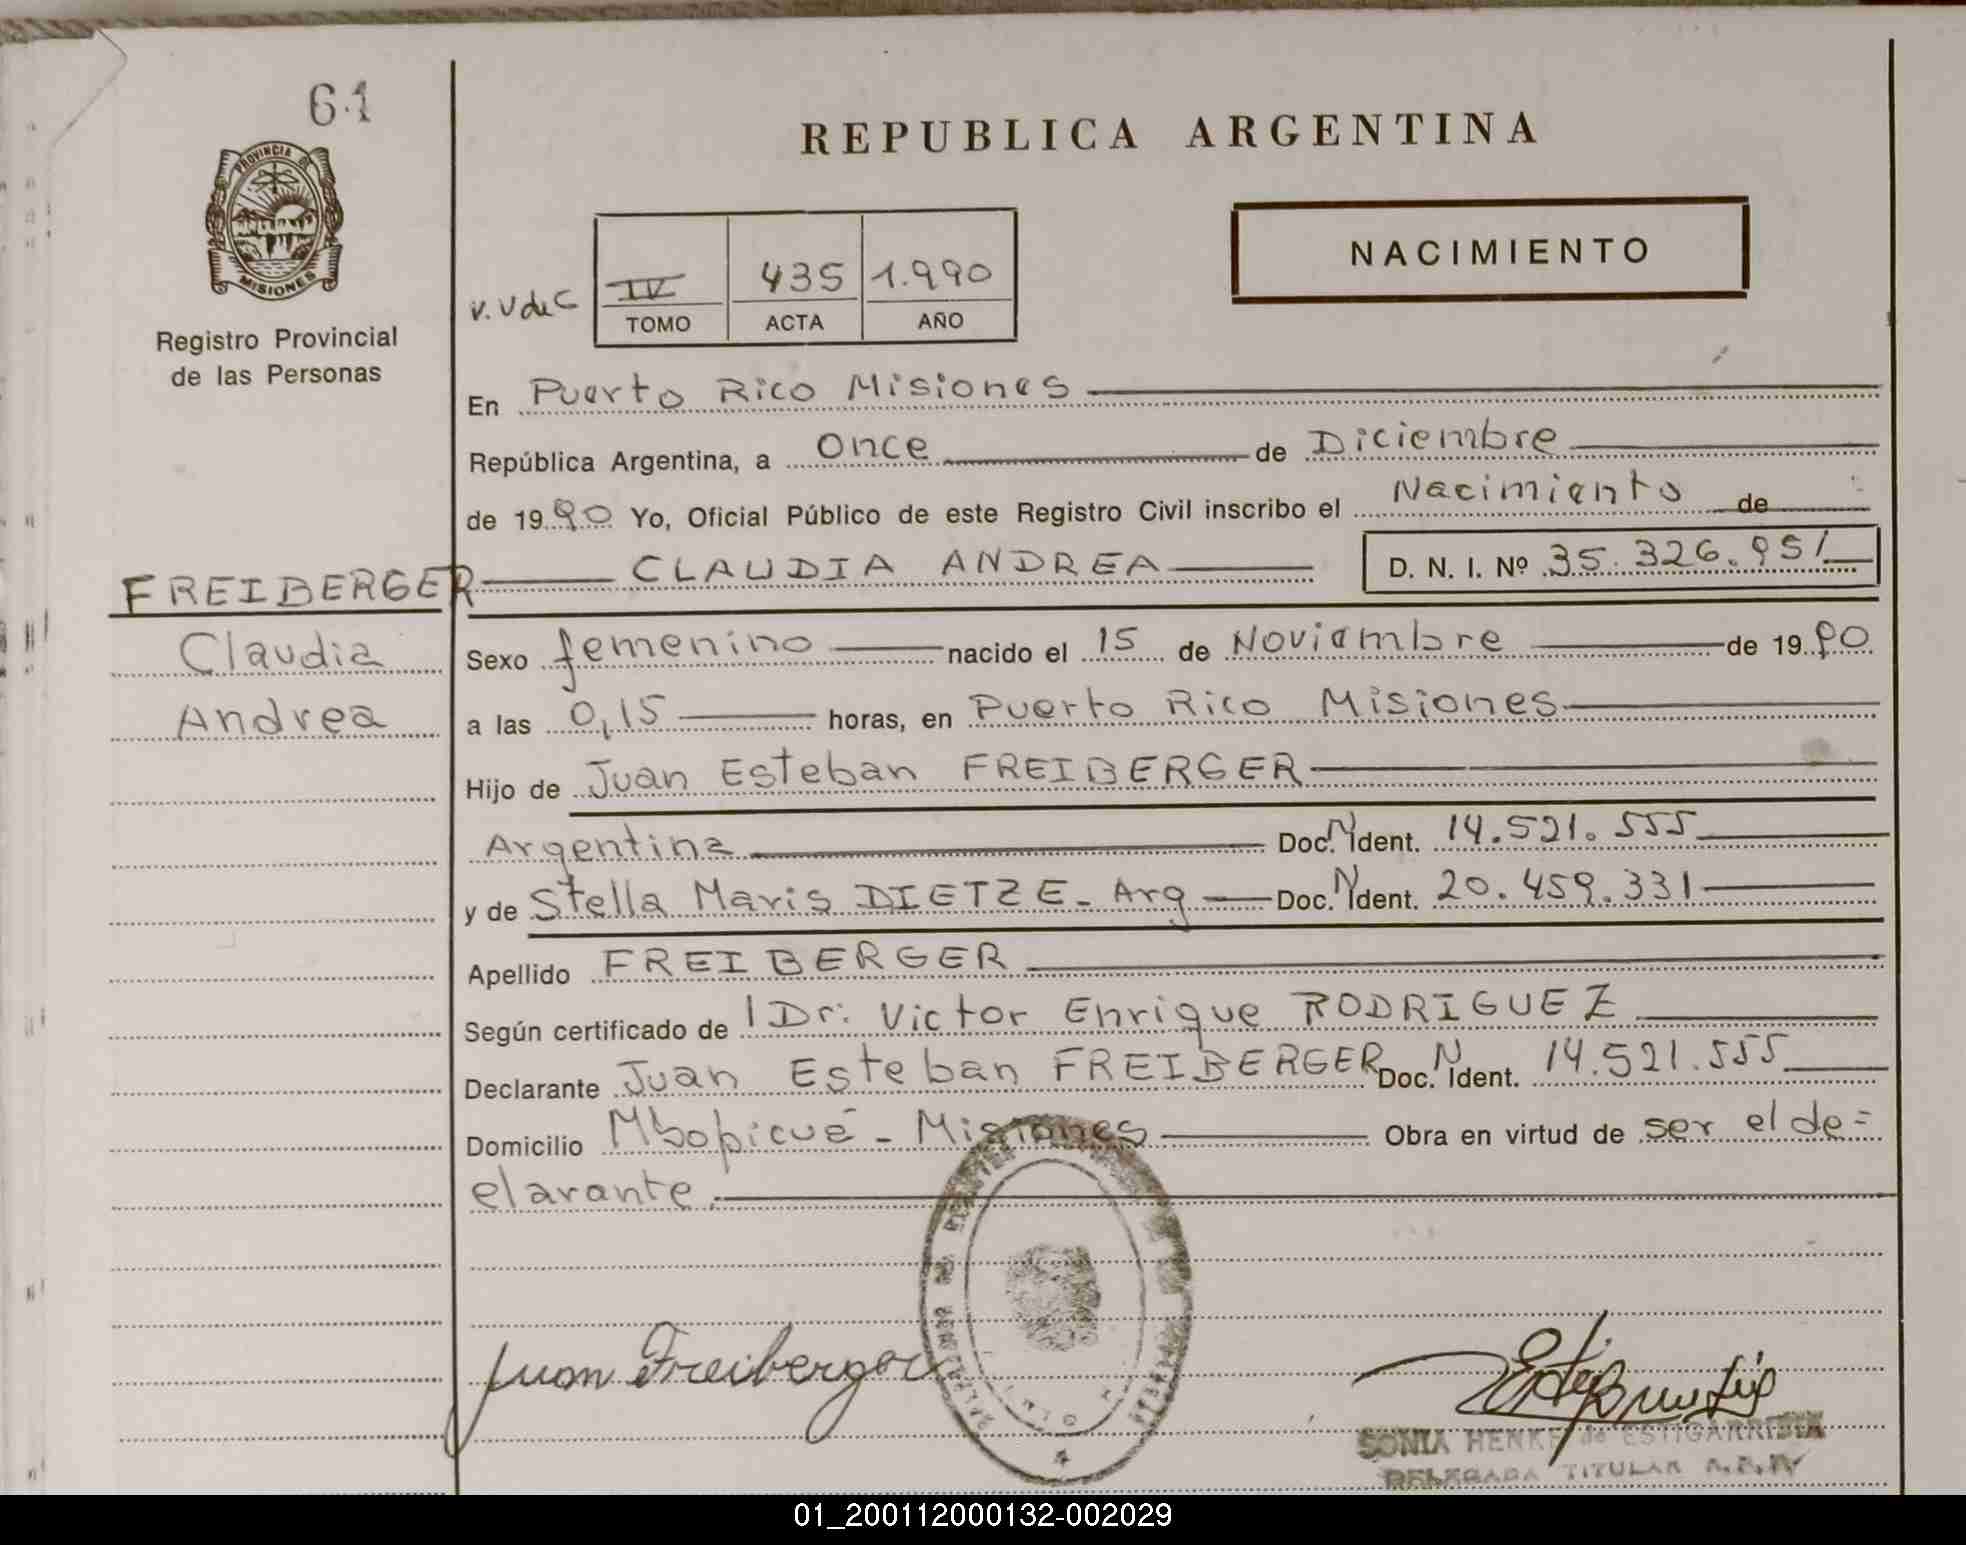 61
PROVINCIA DE
MISIONES
Registro Provincial
de las Personas
FREIBERGER
Claudia
Andrea
REPUBLICA ARGENTINA
NACIMIENTO
V. V de C
IV 435 1.990
TOMO ACTA AÑO
En Puerto Rico Misiones
República Argentina, a Once de Diciembre
de 1990 Yo, Oficial Público de este Registro Civil inscribo el Nacimiento de
CLAUDIA ANDREA D. N. I. Nº 35.326.951
Sexo femenino nacido el 15 de Noviembre de 1990
a las 0,15 horas, en Puerto Rico Misiones
Hijo de Juan Esteban FREIBERGER
Argentina Doc. N Ident. 14.521.555
y de Stella Maris DIETZE - Arg Doc. N Ident. 20.459.331
Apellido FREIBERGER
Según certificado de Dr: Victor Enrique RODRIGUEZ
Declarante Juan Esteban FREIBERGER Doc. N Ident. 14.521.555
Domicilio Mbopicuá - Misiones Obra en virtud de ser el de=
clarante.
Juan Freiberger
SONIA HENKE de ESTIGARRIBIA
DELEGADA TITULAR R.P.P.
01_200112000132-002029